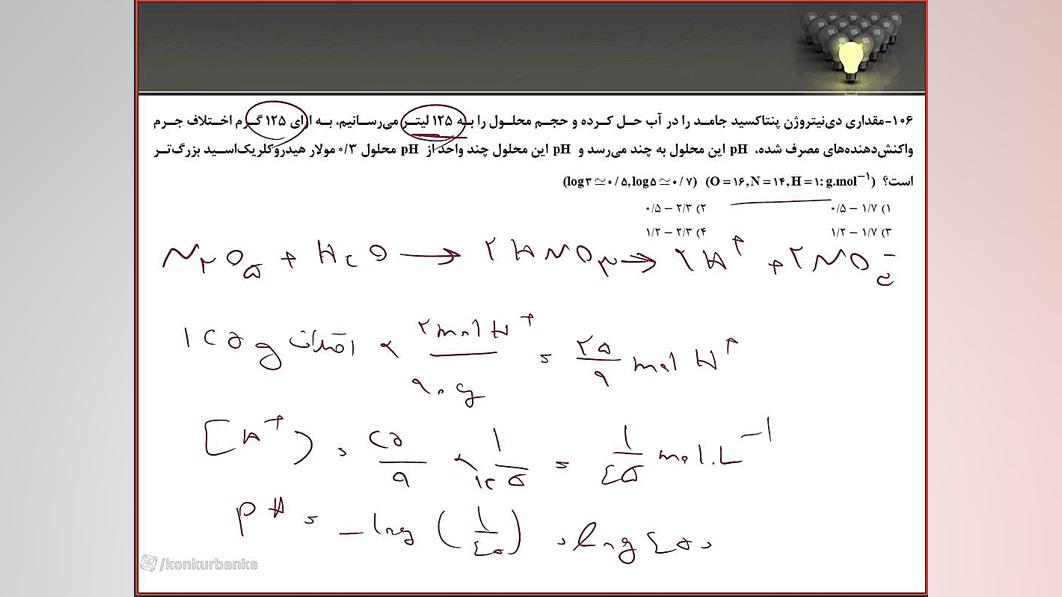 ۱۰۶-مقداری دی‌نیتروژن پنتاکسید جامد را در آب حل کرده و حجم محلول را به ۱۲۵ لیتر می‌رسانیم، به ازای ۱۲۵ گرم اختلاف جرم
واکنش‌دهنده‌های مصرف شده، pH این محلول به چند می‌رسد و pH این محلول چند واحد از pH محلول ۰/۳ مولار هیدروکلریک‌اسید بزرگ‌تر
است؟ (O = ۱۶, N = ۱۴, H = ۱ : g.mol⁻¹) (log۳ ≃ ۰/۵, log۵ ≃ ۰/۷)
۱) ۱/۷ – ۰/۵ ۲) ۲/۳ – ۰/۵
۳) ۱/۷ – ۱/۲ ۴) ۲/۳ – ۱/۲
N₂O₅ + H₂O → ۲HNO₃ → ۲H⁺ + ۲NO₃⁻
۱۲۵g اختلاف × ۲mol H⁺ / ۹۰g = ۲۵/۹ mol H⁺
[H⁺] = ۲۵/۹ × ۱/۱۲۵ = ۱/۴۵ mol.L⁻¹
pH = -log (۱/۴۵) = log ۴۵ =
/konkurbanks